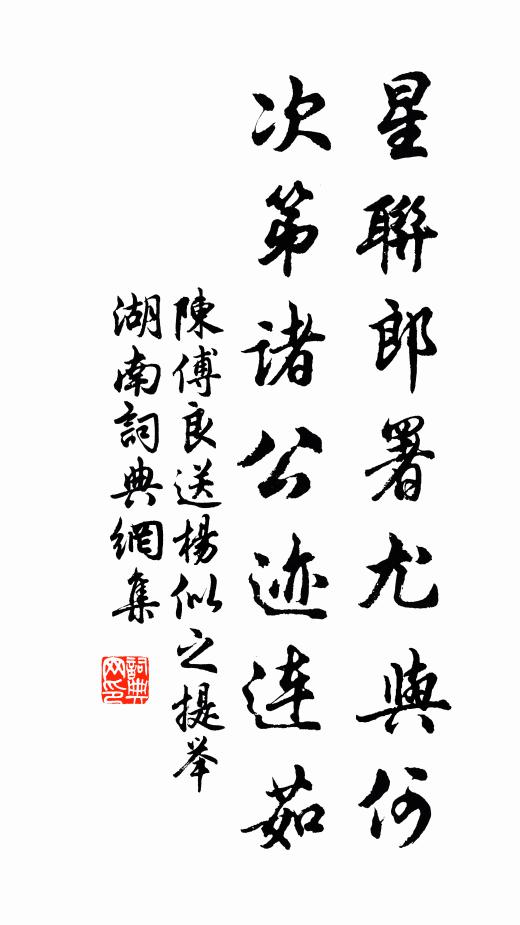 星聯郎署尤與何
次第诸公迹连茹
陳傅良送楊似之提举
湖南詞典網集
詞典网印